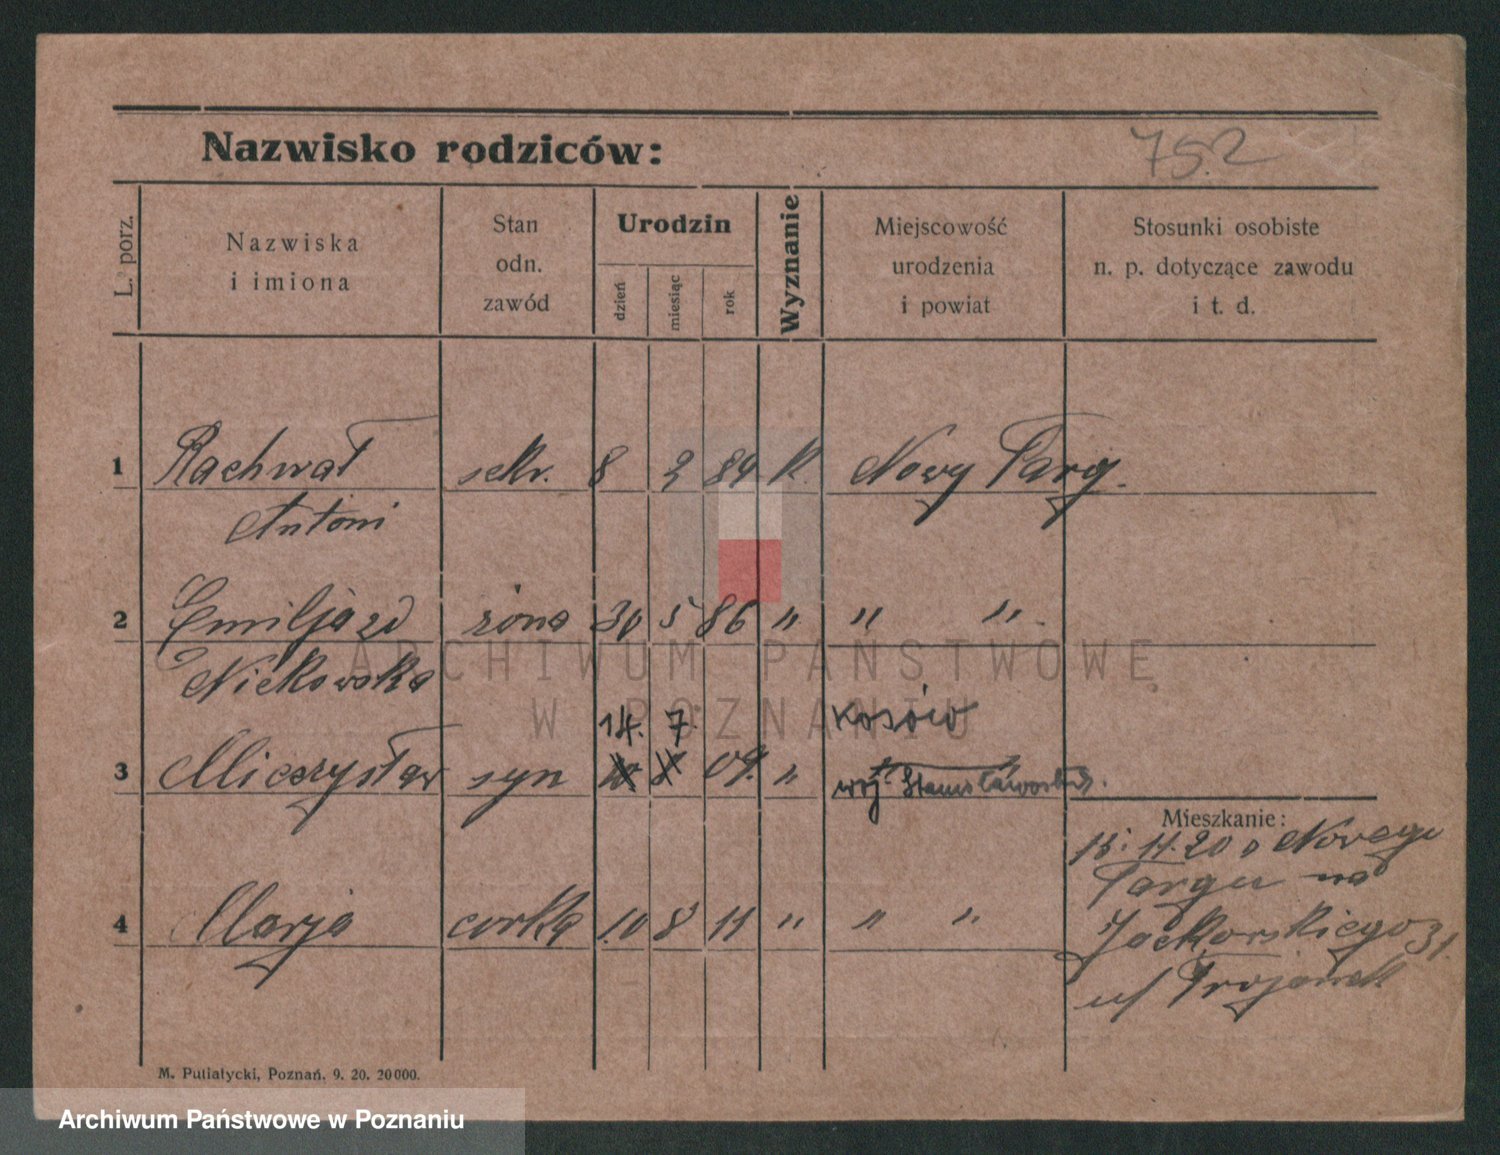 Nazwisko rodziców:
752
L. porz.
Nazwiska
i imiona
Stan
odn.
zawód
Urodzin
dzień
miesiąc
rok
Wyznanie
Miejscowość
urodzenia
i powiat
Stosunki osobiste
n. p. dotyczące zawodu
i t. d.
1 Rachwał sekr. 8 2 84 k. Nowy Targ.
Antoni
2 Emilja zd żona 30 5 86 " " ".
Niekowska
14. 7. Kosów
3 Mieczysław syn 09. " " "
woj. Stanisławowskie.
Mieszkanie:
15.11.20 z Nowego
Targu na
4 Marja corka 10 8 11 " " "
Jackowskiego 31.
u/ Trojanek
M. Putiatycki, Poznań. 9. 20. 20000.
ARCHIWUM PAŃSTWOWE
W POZNANIU
Archiwum Państwowe w Poznaniu